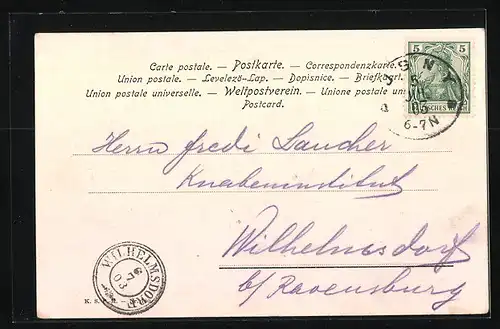 Carte postale. — Postkarte. — Correspondenzkarte.
Union postale. — Levelező-Lap. — Dopisnice. — Briefkart.
Union postale universelle. — Weltpostverein. — Unione postale
Postcard.
5 5
6-7N
Herrn Fredi Laucher
Knabeninstitut
Wilhelmsdorf
b/ Ravensburg
WILHELMSDORF
K. S.